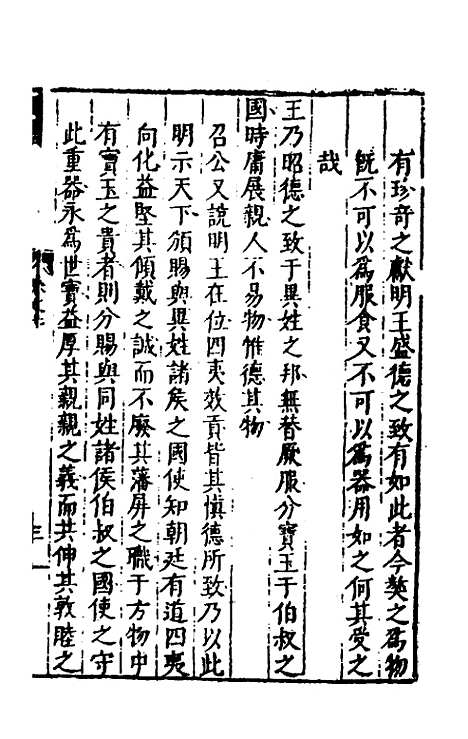 有珍奇之獻明王盛德之致有如此者今獒之為物
旣不可以爲服食又不可以爲器用如之何其受之
哉
王乃昭德之致于異姓之邦無替厥服分寶玉于伯叔之
國時庸展親人不易物惟德其物
召公又說明王在位四夷效貢皆其慎德所致乃以此
明示天下頒賜與異姓諸矦之國使知朝廷有道四夷
向化益堅其傾戴之誠而不廢其藩屏之職于方物中
有寳玉之貴者則分賜與同姓諸侯伯叔之國使之守
此重器永爲世寳益厚其親親之義而共伸其敦睦之